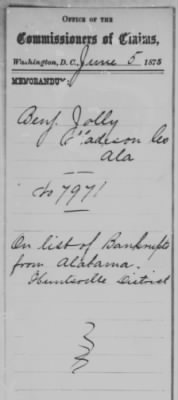 OFFICE OF THE
Commissioners of Claims,
Washington, D.C., June 5 1875
MEMORANDUM:
Benj. Jolly
Madison Co
Ala
No 7971
On list of Bankrupts
from Alabama.
Huntsville District